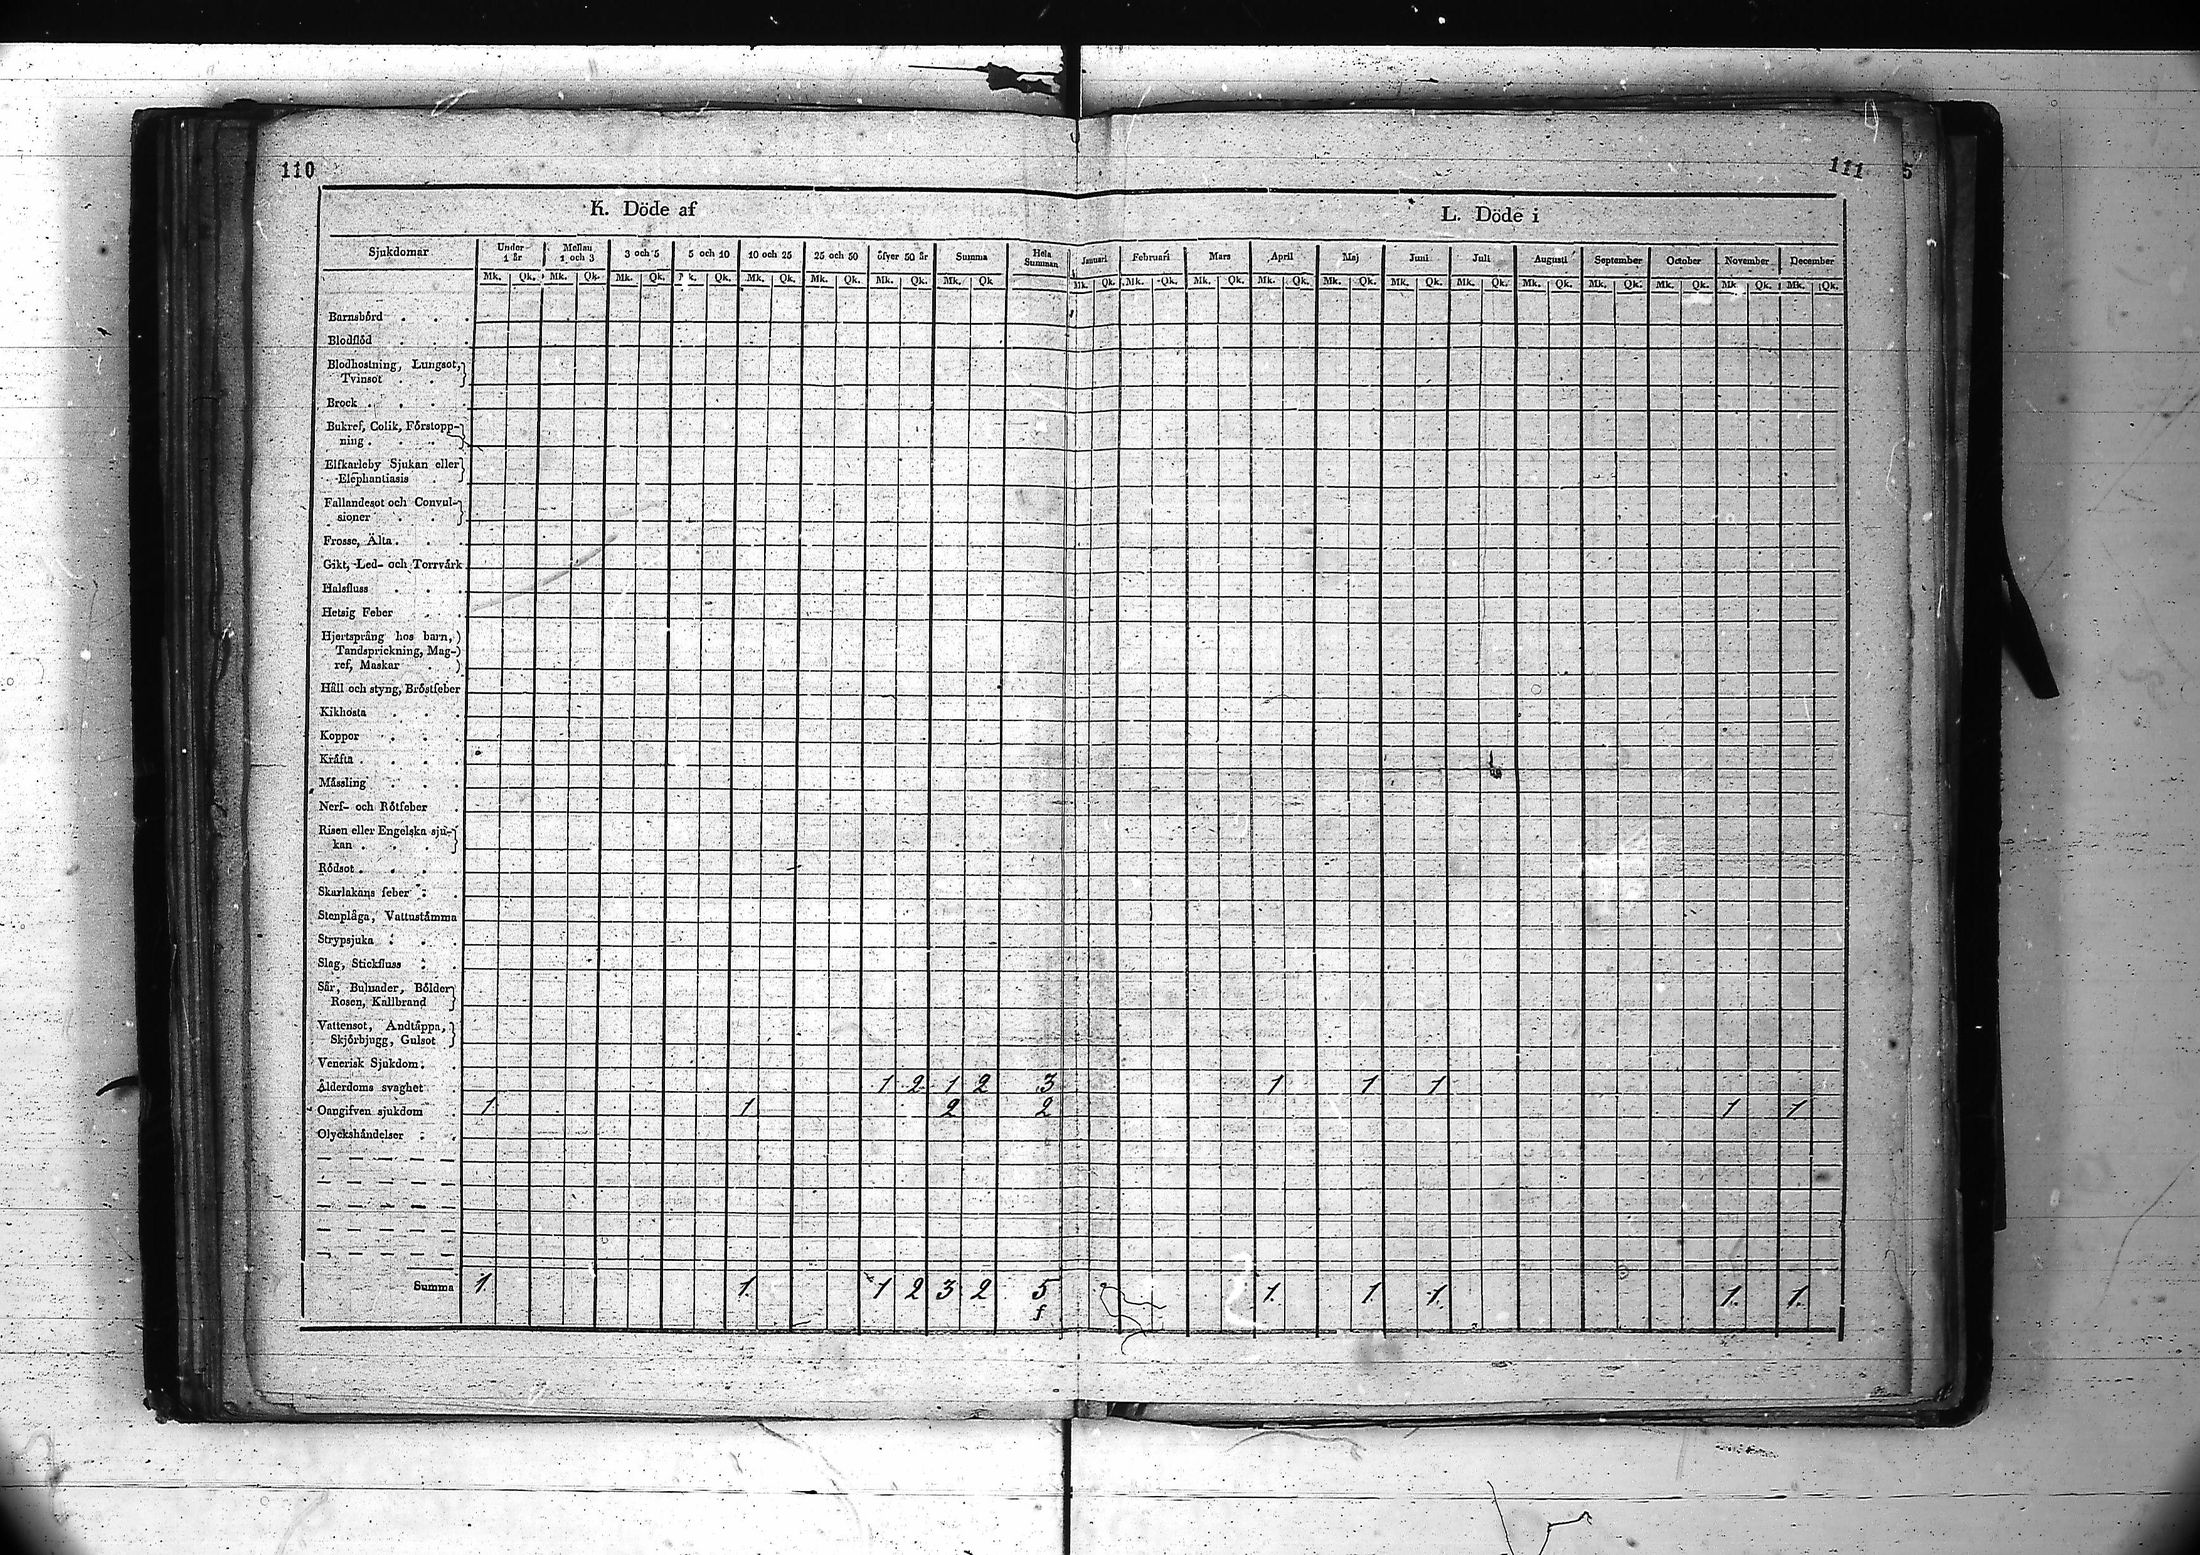 110
111
5
K. Döde af
L. Döde i
Sjukdomar Under 1 år Mellan 1 och 3 3 och 5 5 och 10 10 och 25 25 och 50 öfver 50 år Summa Hela Summan Januari Februari Mars April Maj Juni Juli Augusti September October November December
Mk. Qk. Mk. Qk. Mk. Qk. Mk. Qk. Mk. Qk. Mk. Qk. Mk. Qk. Mk. Qk Mk. Qk. Mk. Qk. Mk. Qk. Mk. Qk. Mk. Qk. Mk. Qk. Mk. Qk. Mk. Qk. Mk. Qk. Mk. Qk. Mk. Qk. Mk. Qk.
Barnsbörd . . .
Blodflöd . . .
Blodhostning, Lungsot,
Tvinsot . .
Brock . . . .
Bukref, Colik, Förstopp-
ning . . .
Elfkarleby Sjukan eller
Elephantiasis .
Fallandesot och Convul-
sioner . .
Frosse, Älta . . .
Gikt, Led- och Torrvärk
Halsfluss . . .
Hetsig Feber . .
Hjertsprång hos barn,
Tandsprickning, Mag-
ref, Maskar .
Håll och styng, Bröstfeber
Kikhosta . . .
Koppor . . .
Kräfta . . .
Mässling . . .
Nerf- och Rötfeber .
Risen eller Engelska sju-
kan . . .
Rödsot . . . .
Skarlakans feber . .
Stenplåga, Vattustämma
Strypsjuka . . .
Slag, Stickfluss . .
Sår, Bulnader, Bölder
Rosen, Kallbrand
Vattensot, Andtäppa,
Skjörbjugg, Gulsot
Venerisk Sjukdom . .
Ålderdoms svaghet . 1 2 1 2 3 1 1 1
Oangifven sjukdom . 1 1 2 2 1 1
Olyckshändelser . .
Summa 1. 1. 1 2 3 2 5 1. 1 1. 1. 1.